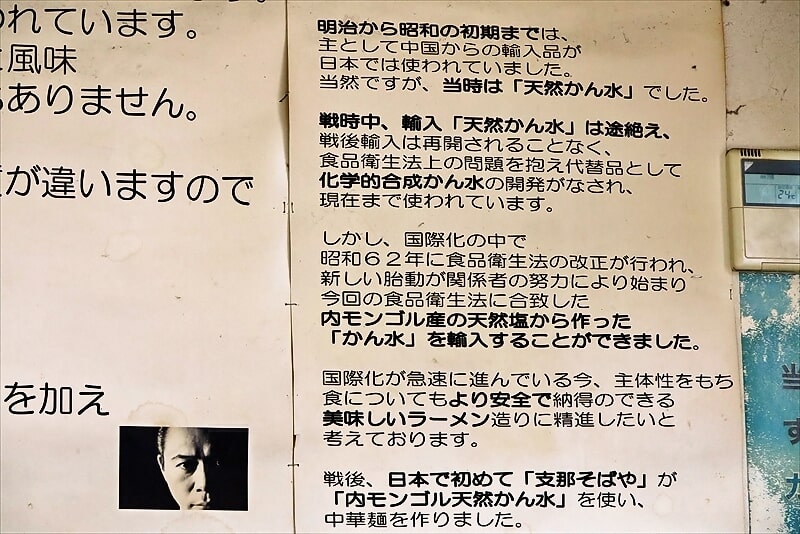 われています。
風味
ありません。
が違いますので
を加え
明治から昭和の初期までは、
主として中国からの輸入品が
日本では使われていました。
当然ですが、当時は「天然かん水」でした。
戦時中、輸入「天然かん水」は途絶え、
戦後輸入は再開されることなく、
食品衛生法上の問題を抱え代替品として
化学的合成かん水の開発がなされ、
現在まで使われています。
しかし、国際化の中で
昭和62年に食品衛生法の改正が行われ、
新しい胎動が関係者の努力により始まり
今回の食品衛生法に合致した
内モンゴル産の天然塩から作った
「かん水」を輸入することができました。
国際化が急速に進んでいる今、主体性をもち
食についてもより安全で納得のできる
美味しいラーメン造りに精進したいと
考えております。
戦後、日本で初めて「支那そばや」が
「内モンゴル天然かん水」を使い、
中華麺を作りました。
当
す